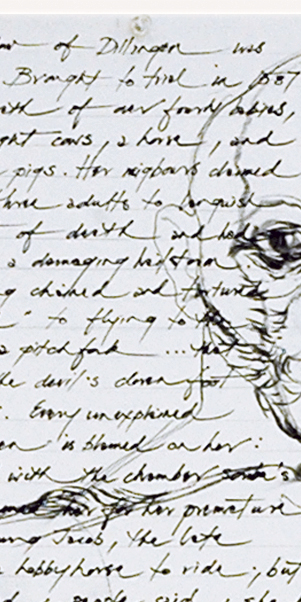 of Dillingen was
Brought to trial in 1587
of our fourty babies,
cows, a horse, and
pigs. Her nigbours claimed
three adults to languish
of death and had
a damaging hailstorm
chained and tortured
" to flying to the
pitch fork ... the
devil's cloven foot
. Every unexplained
is blamed on her:
with the chamber
her for her premature
Jacob, the late
hobbyhorse to ride, but
people said she